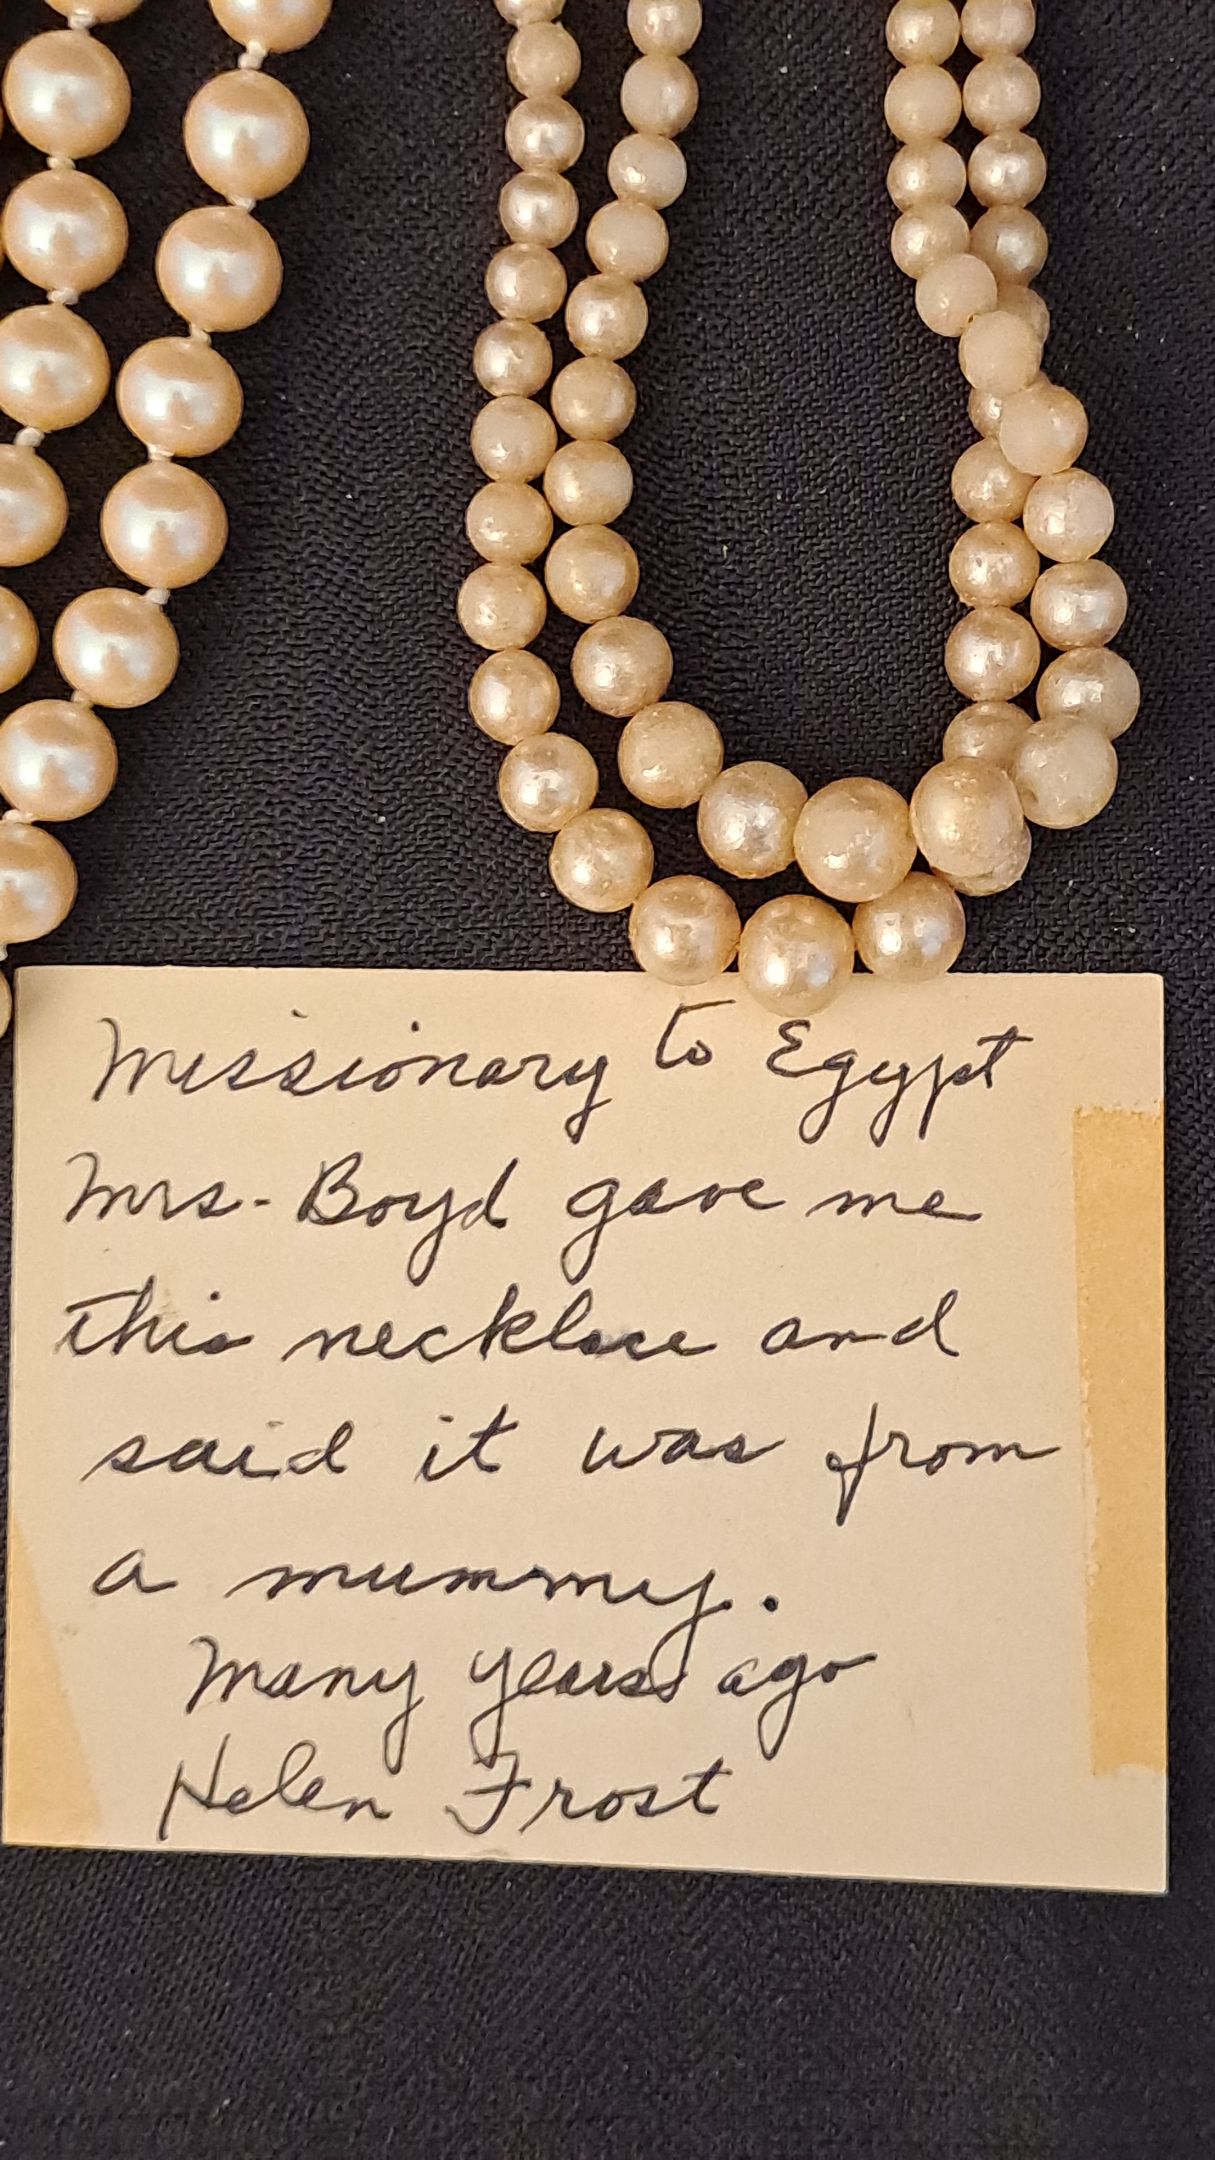 Missionary to Egypt
Mrs. Boyd gave me
this necklace and
said it was from
a mummy.
Many years ago
Helen Frost